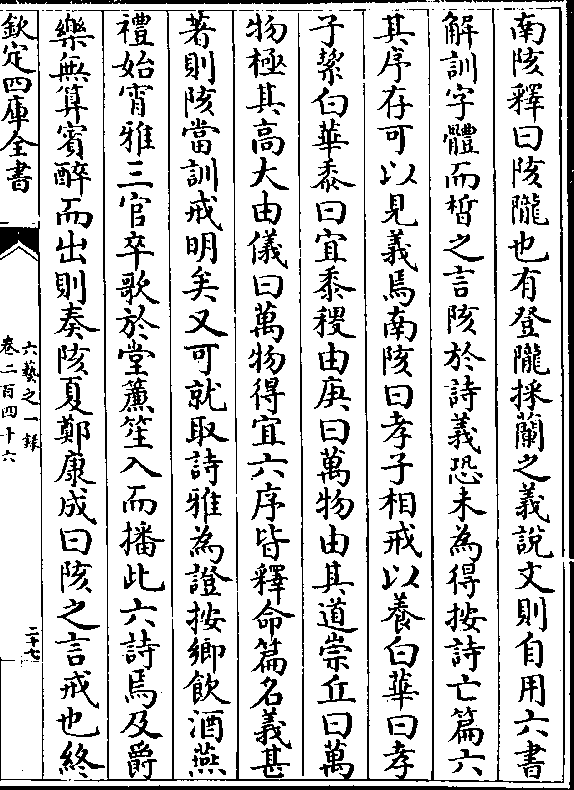 南陔釋曰陔隴也有登隴採蘭之義說文則自用六書
解訓字體而晳之言陔於詩義恐未為得按詩亡篇六
其序存可以見義焉南陔曰孝子相戒以養白華曰孝
子潔白華黍曰宜黍稷由庚曰萬物由其道崇丘曰萬
物極其高大由儀曰萬物得宜六序皆釋命篇名義甚
著則陔當訓戒明矣又可就取詩雅為證按鄉飲酒燕
禮始宵雅三官卒歌於堂薦笙入而播此六詩焉及爵
樂無算賓醉而出則奏陔夏鄭康成曰陔之言戒也終
欽定四庫全書
六藝之一錄
卷二百四十六
二十七